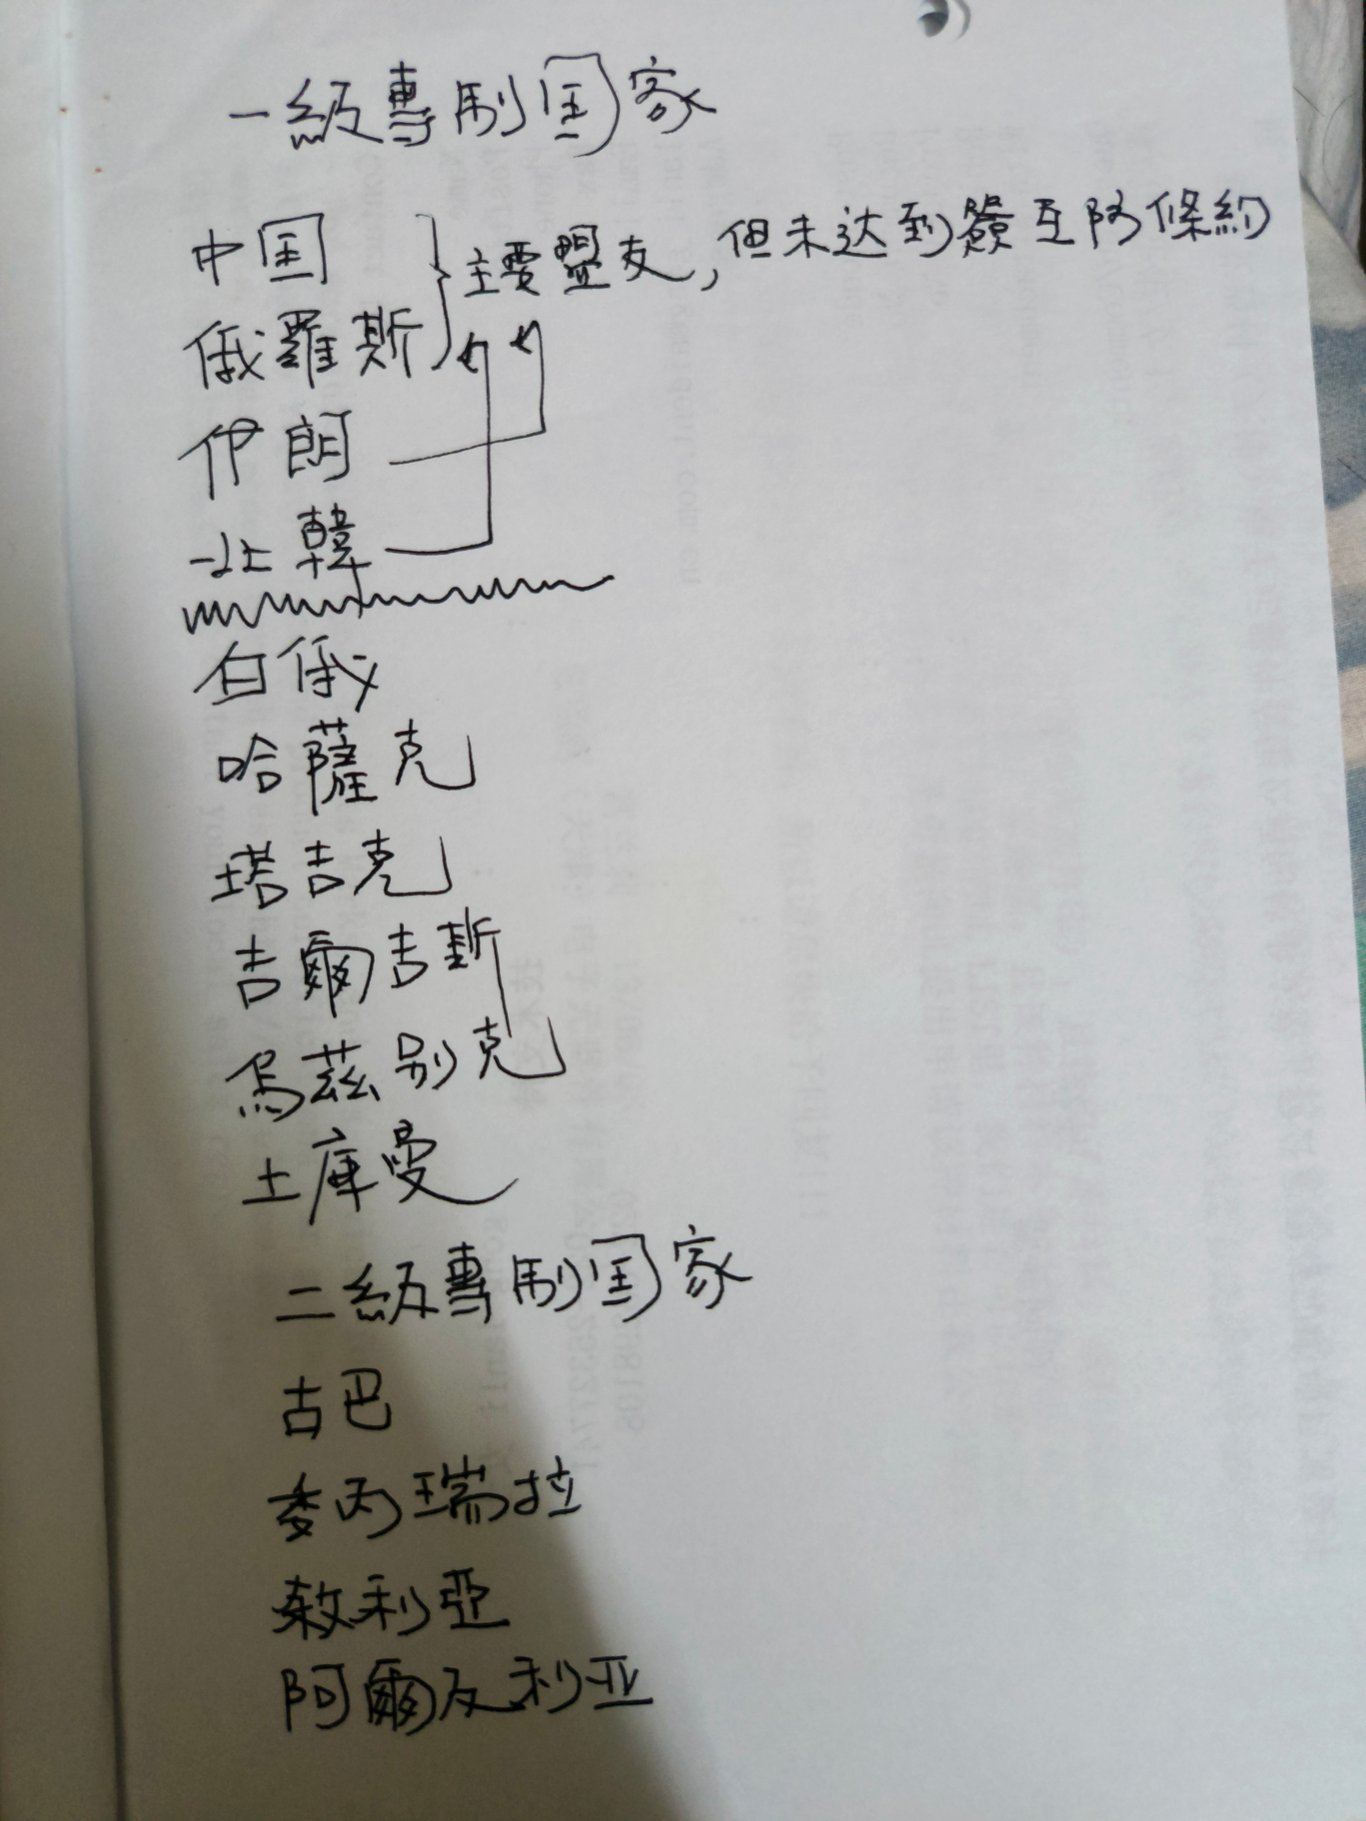 一級專制国家
中国
主要盟友，但未达到簽互防條約
俄羅斯
伊朗
北韓
白俄
哈薩克
塔吉克
吉爾吉斯
烏茲别克
土庫曼
二級專制国家
古巴
委內瑞拉
敘利亞
阿爾及利亚